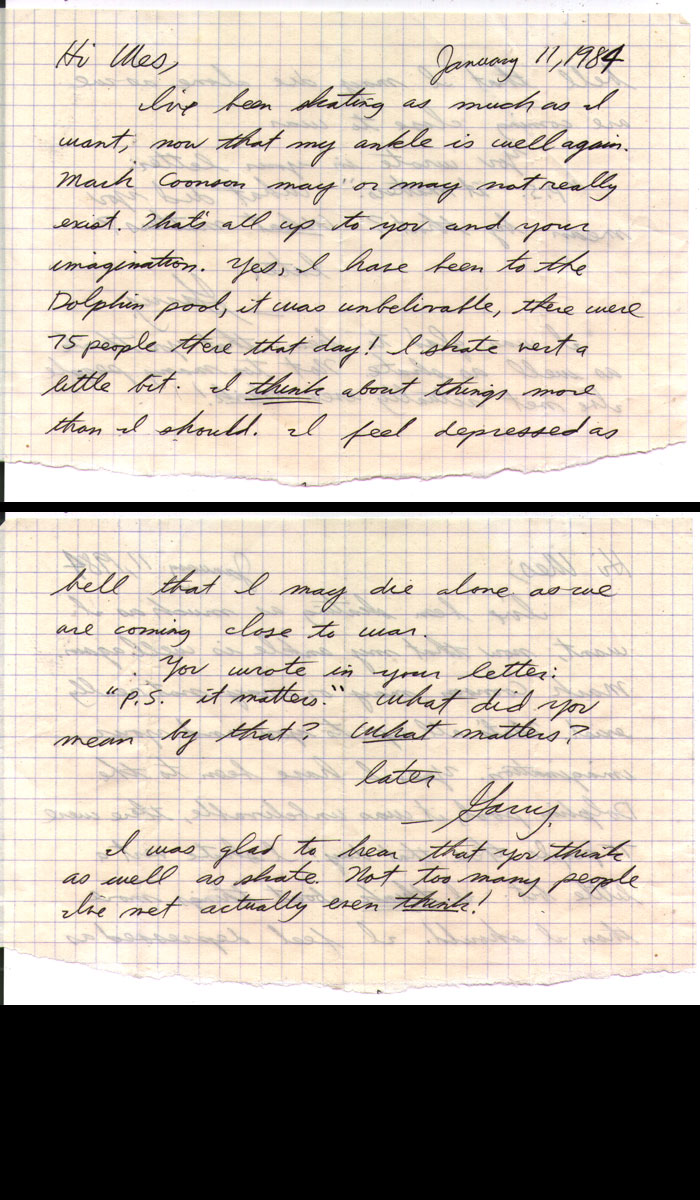 Hi Wes,
January 11, 1984
I've been skating as much as I
want, now that my ankle is well again.
Mark Coonson may or may not really
exist. That's all up to you and your
imagination. Yes, I have been to the
Dolphin pool, it was unbelivable, there were
75 people there that day! I skate vert a
little bit. I think about things more
than I should. I feel depressed as
hell that I may die alone as we
are coming close to war.
. You wrote in your letter:
"P.S. it matters." What did you
mean by that? What matters?
later
— Garry.
I was glad to hear that you think
as well as skate. Not too many people
I've met actually even think!